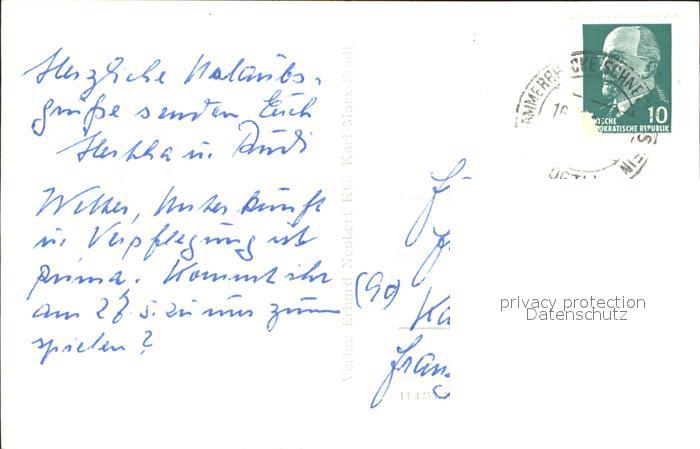 Herzliche Urlaubs-
grüße senden Euch
Hertha u. Rudi
Wetter, Unterkunft
u. Verpflegung ist
prima. Kommt ihr
am 27. 5. zu uns zum
spielen?
Verlag Erhard Neubert KG Karl-Marx-Stadt
(90)
DEUTSCHE
DEMOKRATISCHE REPUBLIK
10
privacy protection
Datenschutz